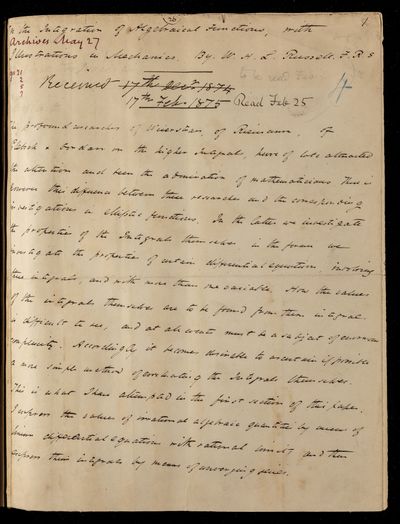 On the Integration of Algebraical Functions, with
Archives May 27
Illustrations in Mechanics. By W. H. L. Russell. F. R. S
Received 17th Decr 1874
17th Feb. 1875 Read Feb 25
to be read Feb
4
1.
The profound researches of Weierstrass, of Riemann, of
Clebsch & Gordan on the higher Integrals, have of late attracted
the attention and been the admiration of mathematicians There is
however this difference between these researches and the corresponding
investigations in elliptic functions. In the latter we investigate
the properties of the Integrals themselves in the former we
investigate the properties of certain differential equations involving
these integrals, and with more than one variable. How the values
of the integrals themselves are to be found from them in general
is difficult to see, and at all events must be a subject of enormous
complexity. Accordingly it becomes desirable to ascertain if possible
a more simple method of evaluating the Integrals themselves.
This is what I have attempted in the first section of this paper.
I express the values of irrational algebraic quantities by means of
linear differential equations with rational and then
express their integrals by means of converging series.